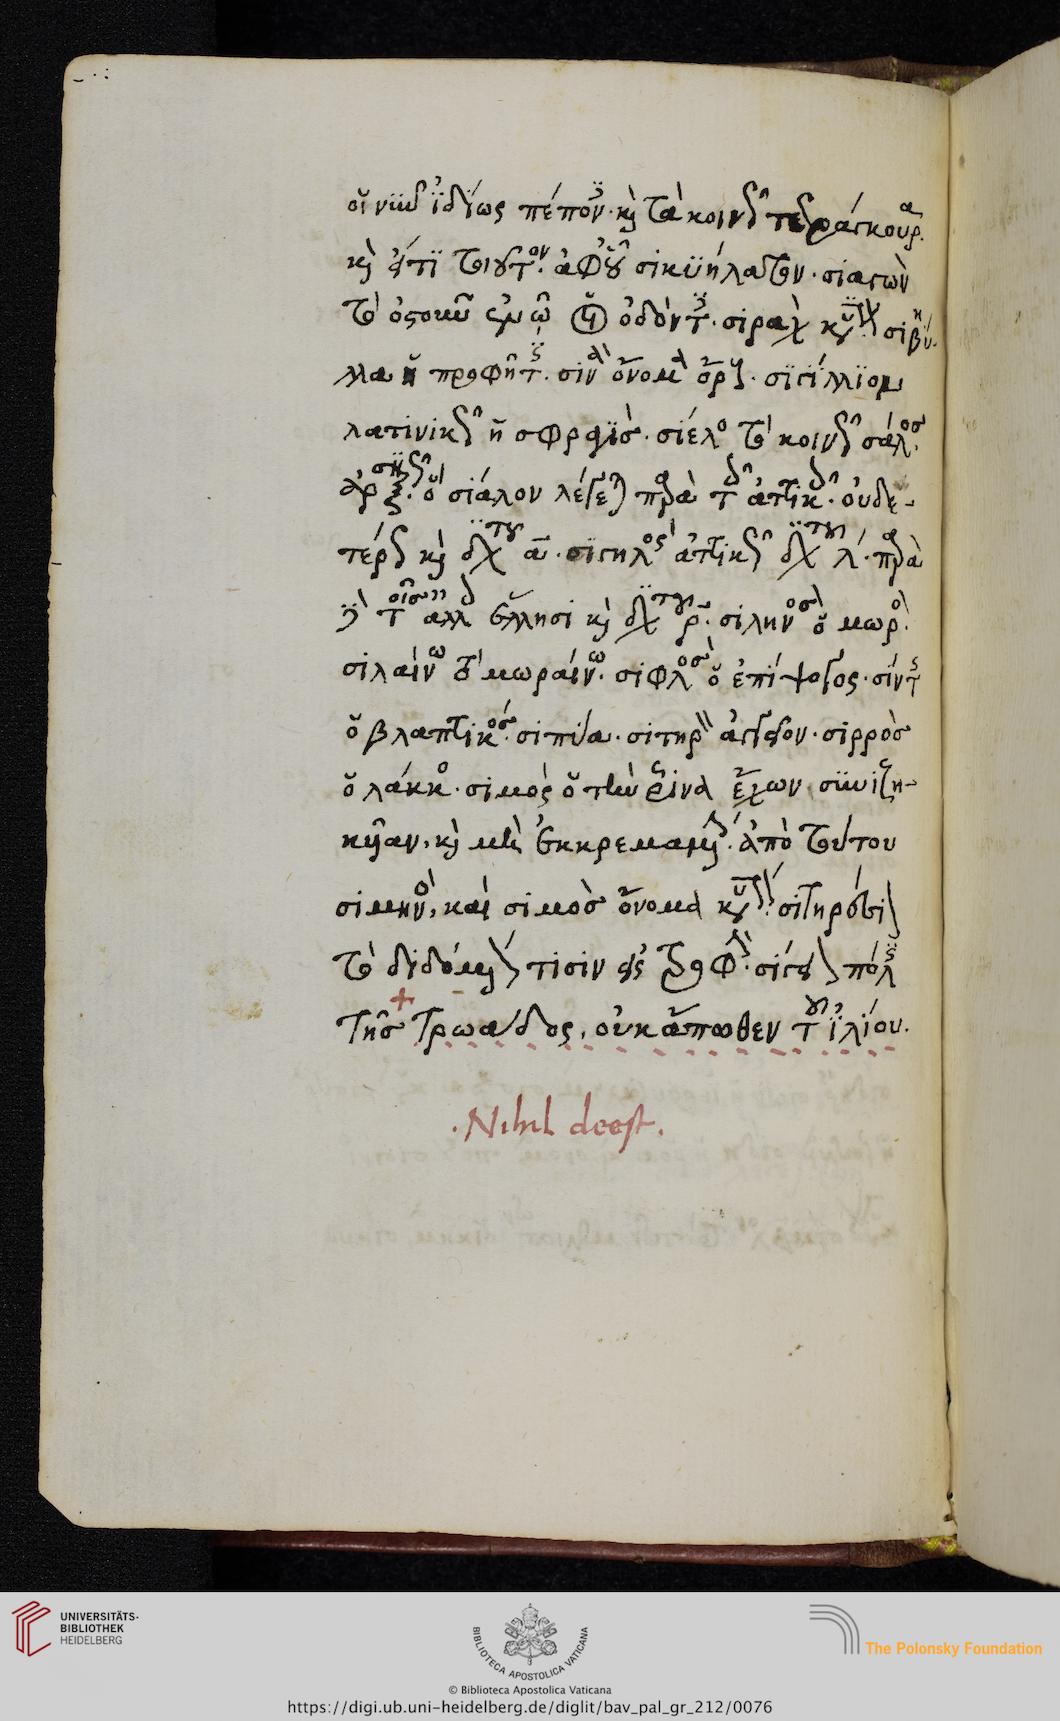 οἱ νῦν ἰδίως πέπον· καὶ τὰ κοινῶς τετράγκουρα.
καὶ ἔτι τοιοῦτον. ἀφ' οὗ σικυήλατον· σιαγὼν
τὸ ὀστοῦν ἐν ᾧ οἱ ὀδόντες· σιραχ κύριον· σιβύλ
λα ἡ προφῆτις. σινᾶ ὄνομα ὄρους· σιγίλλιον
λατινικῶς ἡ σφραγίς· σίελος τὸ κοινῶς σάλος.
ὁ σίαλον λέγεται παρὰ τοῖς ἀττικοῖς· οὐδε-
τέρως καὶ διὰ τοῦ α· σιγηλὸς ἀττικῶς διὰ τοῦ λ· παρὰ
δὲ τοῖς ἄλλοις ἕλλησι καὶ διὰ τοῦ ρ· σιληνὸς ὁ μωρός.
σιλαίνω τὸ μωραίνω. σιφλὸς ὁ ἐπίψογος· σίντης
ὁ βλαπτικός. σιπύα. σιτηρὸν ἀγγεῖον· σιρρὸς
ὁ λάκκος. σιμὸς ὁ τὴν ῥῖνα ἔχων συνιζη-
κυῖαν, καὶ μὴ ἐκκρεμαμένην. ἀπὸ τούτου
σιμηνός, καὶ σιμὸς ὄνομα κύριον. σιτηρέσιον
τὸ διδόμενον τισὶν εἰς τροφήν· σίγειον πόλις
τῆς Τρωάδος, οὐκ ἄπωθεν τοῦ ἰλίου.
.Nihil deest.
UNIVERSITÄTS-
BIBLIOTHEK
HEIDELBERG
BIBLIOTECA APOSTOLICA VATICANA
The Polonsky Foundation
© Biblioteca Apostolica Vaticana
https://digi.ub.uni-heidelberg.de/diglit/bav_pal_gr_212/0076